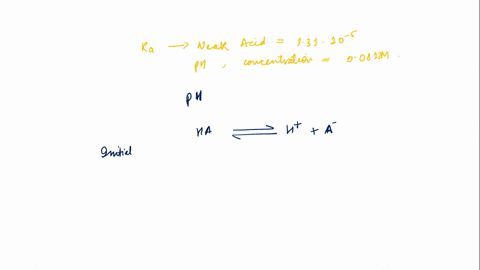 Ka → Weak Acid = 1.31 . 10⁻⁵
PH , concentration = 0.081M .
PH
HA ⇌ H⁺ + A⁻
Initial